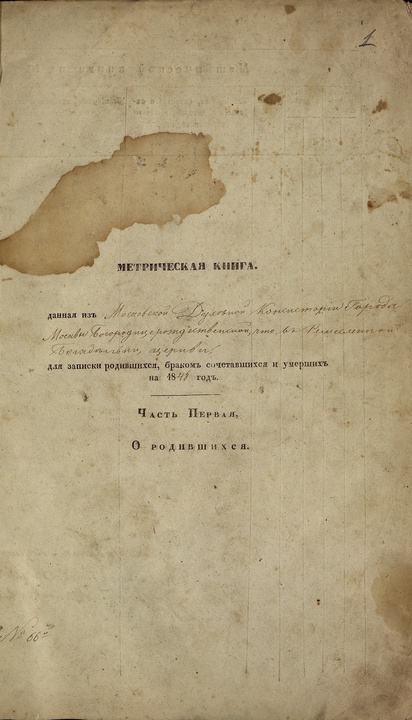 1
МЕТРИЧЕСКАЯ КНИГА.
данная изъ Московской Духовной Консисторіи Города
Москвы Богородицерождественской, что въ
Богадѣльни, церкви,
для записки родившихся, бракомъ сочетавшихся и умершихъ
на 1841 годъ.
Часть Первая,
О родившихся.
№ 66